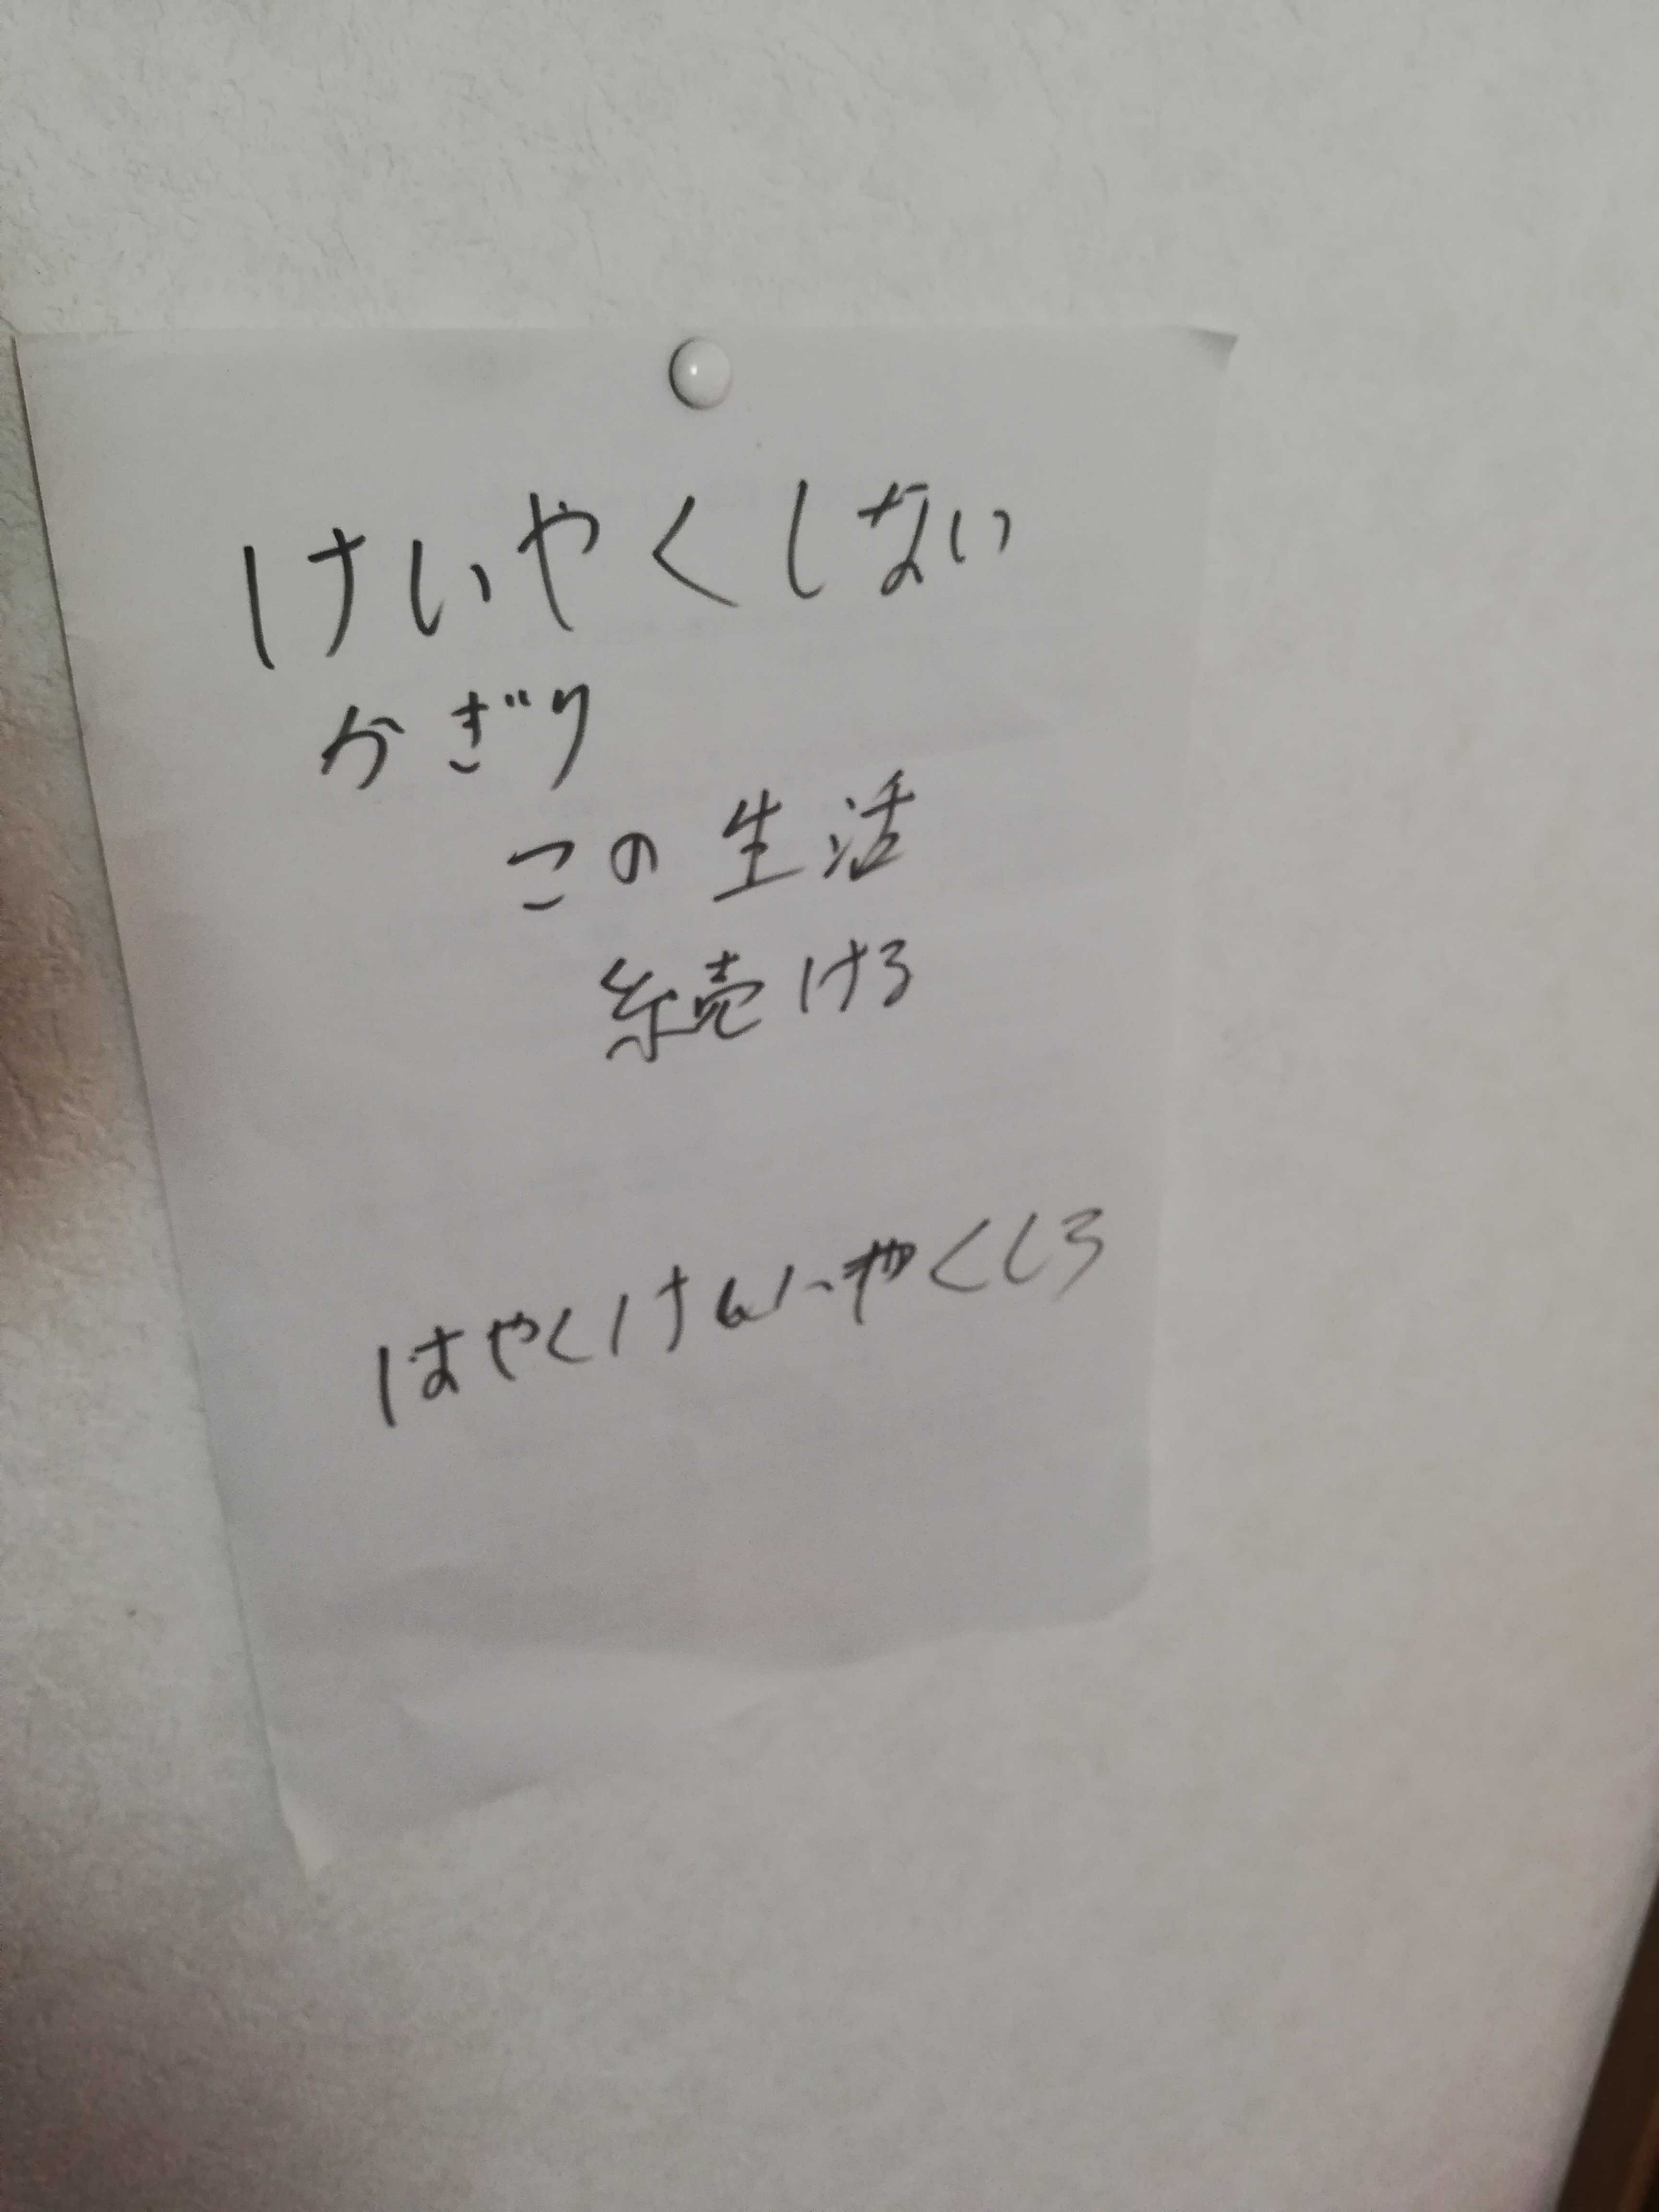 けいやくしない
かぎり
この生活
続ける
はやくけいやくしろ